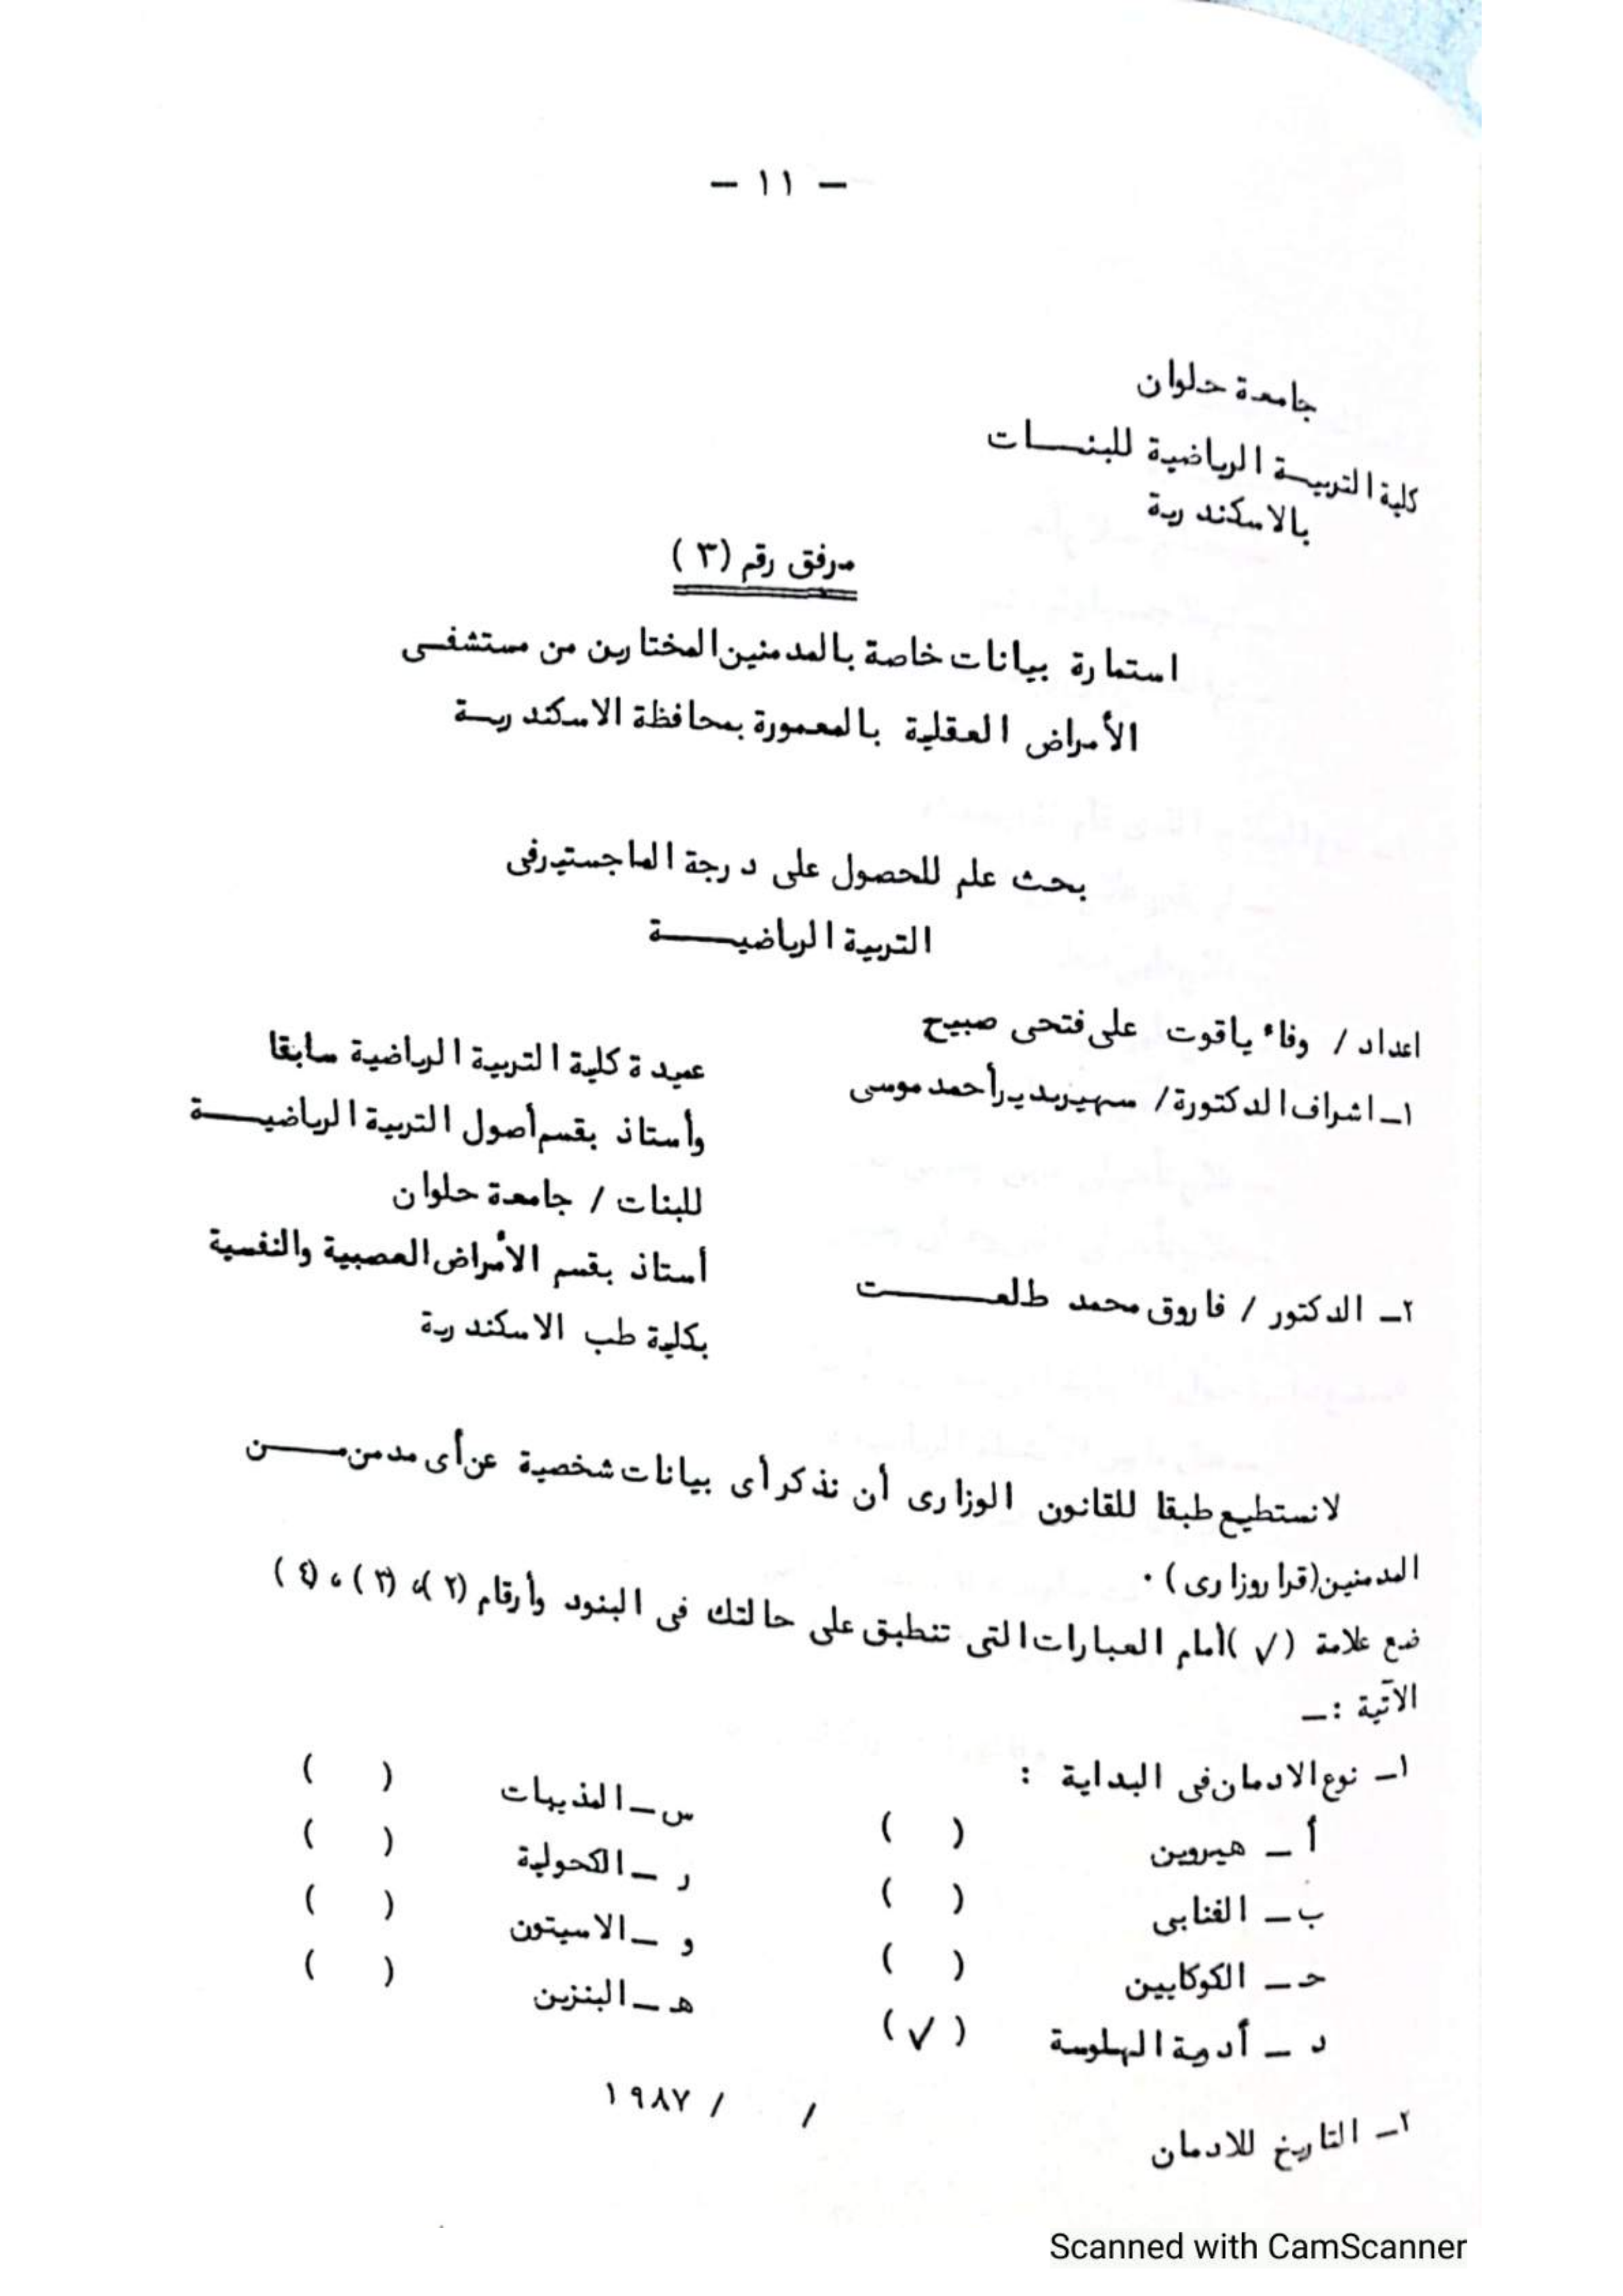 — ١١ —
جامعة حلوان
كلية التربيــة الرياضية للبنــــات
بالاسكندرية
مرفق رقم (٣)
استمارة بيانات خاصة بالمدمنين المختارين من مستشفــى
الأمراض العقلية بالمعمورة بمحافظة الاسكندريــة
بحث علم للحصول على درجة الماجستيرفى
التربية الرياضيــــــة
اعداد / وفاء ياقوت على فتحى صبيح
١ــ اشراف الدكتورة/ سهيربديرأحمد موسى
عميدة كلية التربية الرياضية سابقا
وأستاذ بقسم أصول التربية الرياضيـــــة
للبنات / جامعة حلوان
٢ــ الدكتور / فاروق محمد طلعـــــــت
أستاذ بقسم الأمراض العصبية والنفسية
بكلية طب الاسكندرية
لانستطيع طبقا للقانون الوزارى أن نذكر أى بيانات شخصية عن أى مدمن مـــــن
المدمنين(قراروزارى) ٠
ضع علامة (√) أمام العبارات التى تنطبق على حالتك فى البنود وأرقام (٢)، (٣)، (٤)
الآتية :ــ
١ــ نوع الادمان فى البداية :
أ ــ هيروين ( )
ب ــ القنابى ( )
حـ ــ الكوكايين ( )
د ــ أدوية الهلوسة (√)
س ــ المذيبات ( )
ر ــ الكحولية ( )
و ــ الاسيتون ( )
هـ ــ البنزين ( )
٢ــ التاريخ للادمان / / ١٩٨٧
Scanned with CamScanner